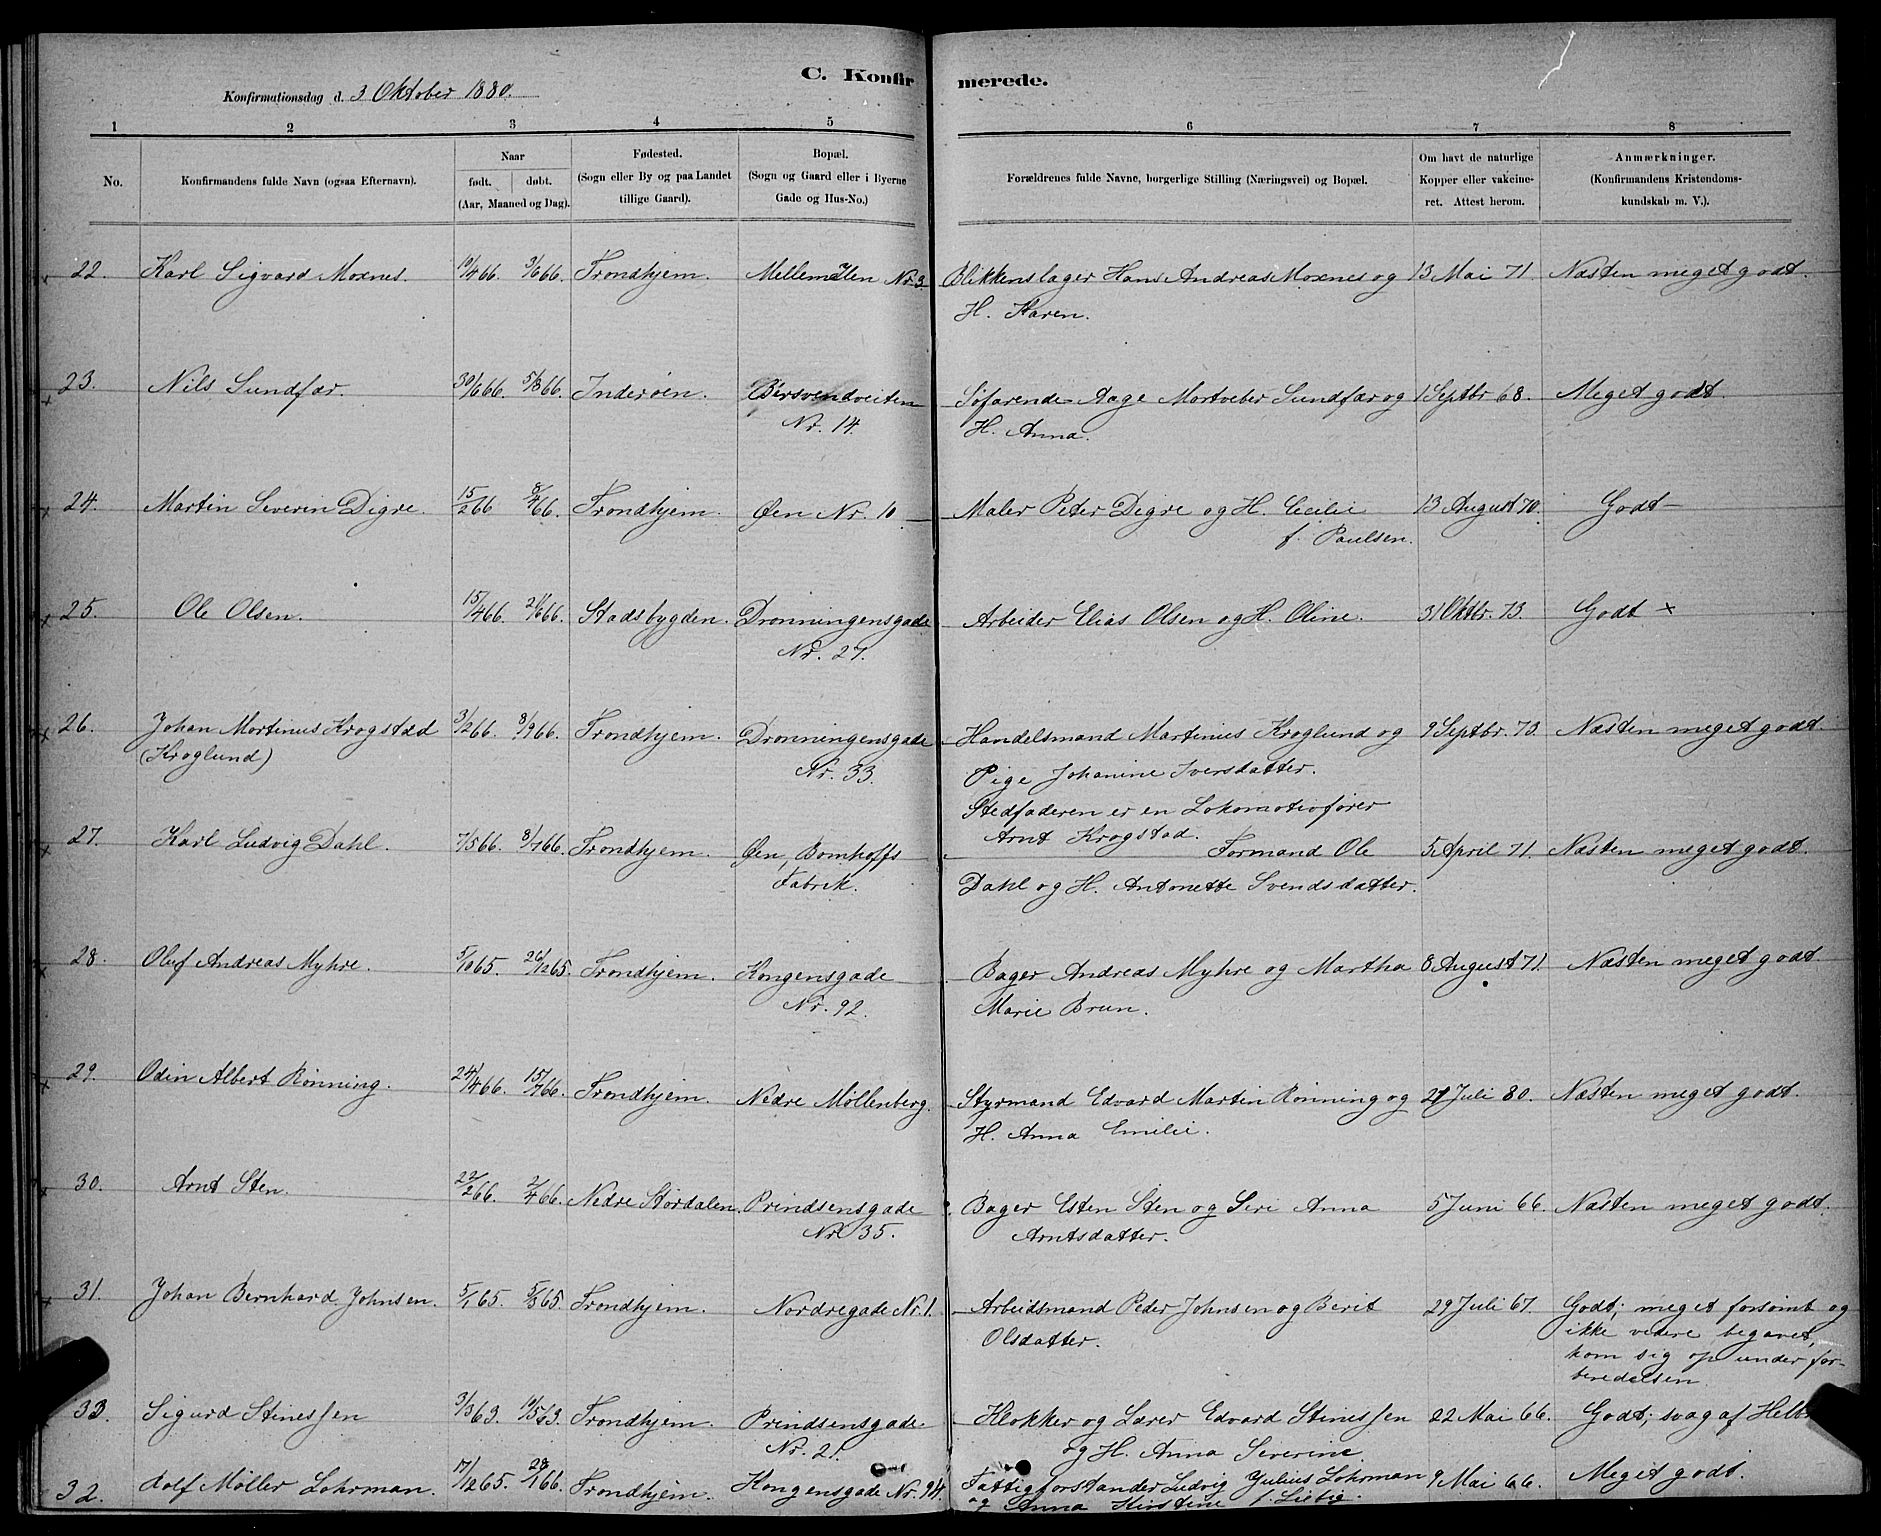 C. Konfirmerede.
Konfirmationsdag d. 3 Oktober 1880.
1 2 3 4 5 6 7 8
No. Konfirmandens fulde Navn (ogsaa Efternavn). Naar født. døbt. (Aar, Maaned og Dag). Fødested. (Sogn eller By og paa Landet tillige Gaard). Bopæl. (Sogn og Gaard eller i Byerne Gade og Hus-No.) Forældrenes fulde Navne, borgerlige Stilling (Næringsvei) og Bopæl. Om havt de naturlige Kopper eller vakcineret. Attest herom. Anmærkninger. (Konfirmandens Kristendomskundskab m. V.).
22. Karl Sigvard Moxnes. 19/4 66. 3/6 66. Trondhjem. Mellemilen Nr. 3. Blikkenslager Hans Andreas Moxnes og 13 Mai 71. Næsten meget godt.
H. Karen.
23. Nils Sundfær. 30/6 66. 5/8 66. Inderøen. Bersvendveiten Søfarende Aage Sundfær og 1 Septbr 68. Meget godt.
Nr. 14. H. Anna.
24. Martin Severin Digre. 15/2 66 8/4 66. Trondhjem. Øen Nr. 10. Maler Peter Digre og H. Cecilie 13 August 70. Godt
f. Paulsen.
25. Ole Olsen. 15/4 66. 21/6 66. Stadsbygden. Dronningensgade Arbeider Elias Olsen og H. Oline. 31 Oktbr. 73. Godt x
Nr. 27.
26. Johan Martinus Krogstad 3/2 66. 8/9 66. Trondhjem. Dronningensgade Handelsmand Martinius Kroglund og 9 Septbr. 73. Næsten meget godt.
(Kroglund) Nr. 33. Pige Johanine Iversdatter.
Stedfaderen er en Lokomotivfører
Arnt Krogstad.
27. Karl Ludvig Dahl. 7/5 66. 8/7 66. Trondhjem. Øen, Bomhoffs Formand Ole 5 April 71. Næsten meget godt.
Fabrik. Dahl og H. Antonette Svendsdatter.
28. Oluf Andreas Myhre. 5/10 65. 26/12 65. Trondhjem. Kongensgade Bager Andreas Myhre og Martha 8 August 71. Næsten meget godt.
Nr. 92. Marie Brun.
29. Odin Albert Rønning. 24/4 66. 15/7 66. Trondhjem. Nedre Møllenberg. Styrmand Edvard Martin Rønning og Juli 80. Næsten meget godt.
H. Anna Emilie.
30. Arnt Sten. 22/2 66. 2/4 66. Nedre Størdalen. Prindsensgade Bager Esten Sten og Seri Anna 5 Juni 66. Næsten meget godt.
Nr 35. Arntsdatter.
31. Johan Bernhard Johnsen. 5/1 65. 5/3 65. Trondhjem. Nordregade Nr. 1. Arbeidsmand Peder Johnsen og Berit 29 Juli 67. Godt; meget forsømt og
Olsdatter. ikke videre begavet,
kom sig op under for-
beredelsen.
33. Sigurd Stinessen 3/3 63. 14/5 63. Trondhjem. Prindsensgade Klokker og Lærer Edvard Stinessen 22 Mai 66. Godt; svag af Helbr
Nr. 2. og H. Anna Severine.
32. Rolf Møller Lohrman. 17/12 65. 28/1 66. Trondhjem. Kongensgade Nr. 94. Fattigforstander Ludvig Julius Lohrman 9 Mai 66. Meget godt.
og Anna Kirstine f. Liebig.